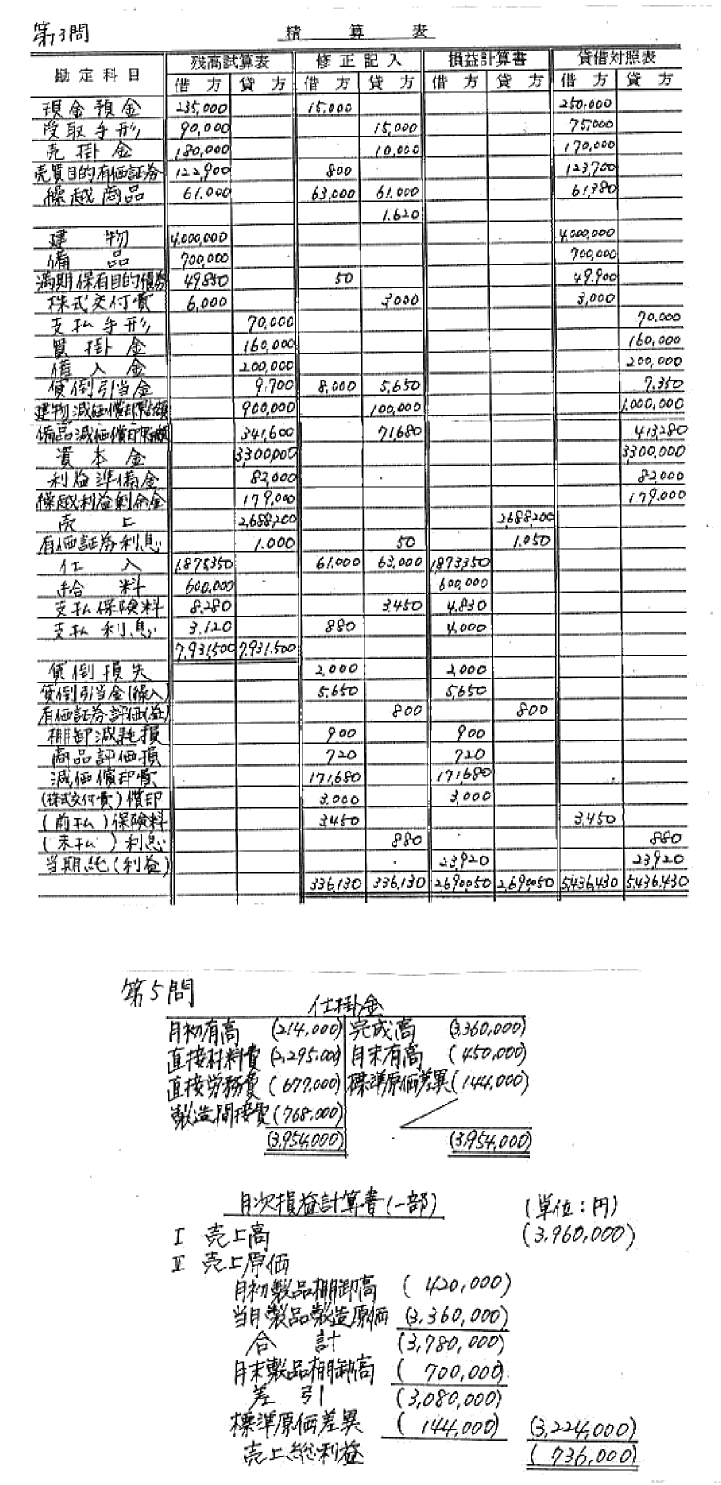 第3問
精算表
勘定科目 残高試算表 修正記入 損益計算書 貸借対照表
借方 貸方 借方 貸方 借方 貸方 借方 貸方
現金預金 235,000 15,000 250,000
受取手形 90,000 15,000 75,000
売掛金 180,000 10,000 170,000
売買目的有価証券 122,900 800 123,700
繰越商品 61,000 63,000 61,000 61,380
1,620
建物 4,000,000 4,000,000
備品 700,000 700,000
満期保有目的債券 49,850 50 49,900
株式交付費 6,000 3,000 3,000
支払手形 70,000 70,000
買掛金 160,000 160,000
借入金 200,000 200,000
貸倒引当金 9,700 8,000 5,650 7,350
建物減価償却累計額 900,000 100,000 1,000,000
備品減価償却累計額 341,600 71,680 413,280
資本金 3,300,000 3,300,000
利益準備金 82,000 82,000
繰越利益剰余金 179,000 179,000
売上 2,688,200 2,688,200
有価証券利息 1,000 50 1,050
仕入 1,875,350 61,000 63,000 1,873,350
給料 600,000 600,000
支払保険料 8,280 3,450 4,830
支払利息 3,120 880 4,000
7,931,500 7,931,500
貸倒損失 2,000 2,000
貸倒引当金(繰入) 5,650 5,650
有価証券評価(益) 800 800
棚卸減耗損 900 900
商品評価損 720 720
減価償却費 171,680 171,680
(株式交付費)償却 3,000 3,000
(前払)保険料 3,450 3,450
(未払)利息 880 880
当期純(利益) 23,920 23,920
336,130 336,130 2,690,050 2,690,050 5,436,430 5,436,430
第5問
仕掛金
月初有高 (214,000) 完成高 (3,360,000)
直接材料費 (2,295,000) 月末有高 (450,000)
直接労務費 (677,000) 標準原価差異 (144,000)
製造間接費 (768,000)
(3,954,000) (3,954,000)
月次損益計算書(一部) (単位:円)
I 売上高 (3,960,000)
II 売上原価
月初製品棚卸高 (420,000)
当月製品製造原価 (3,360,000)
合計 (3,780,000)
月末製品棚卸高 (700,000)
差引 (3,080,000)
標準原価差異 (144,000) (3,224,000)
売上総利益 (736,000)